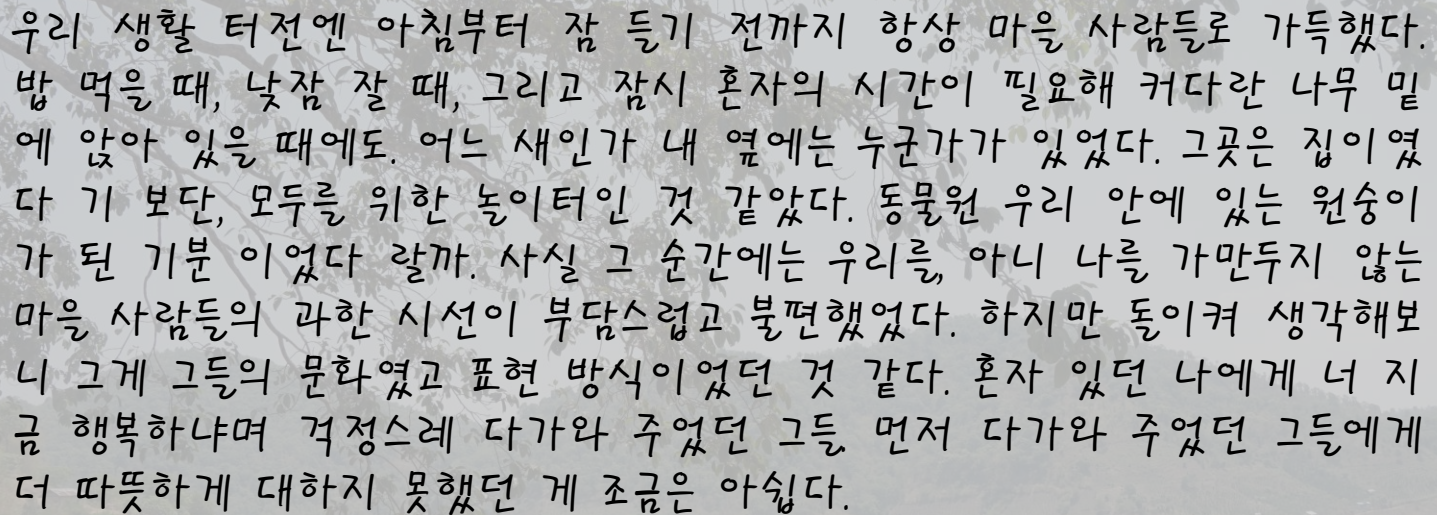 우리 생활 터전엔 아침부터 잠 들기 전까지 항상 마을 사람들로 가득했다.
밥 먹을 때, 낮잠 잘 때, 그리고 잠시 혼자의 시간이 필요해 커다란 나무 밑
에 앉아 있을 때에도. 어느 새인가 내 옆에는 누군가가 있었다. 그곳은 집이였
다 기 보단, 모두를 위한 놀이터인 것 같았다. 동물원 우리 안에 있는 원숭이
가 된 기분 이었다 랄까. 사실 그 순간에는 우리를, 아니 나를 가만두지 않는
마을 사람들의 과한 시선이 부담스럽고 불편했었다. 하지만 돌이켜 생각해보
니 그게 그들의 문화였고 표현 방식이었던 것 같다. 혼자 있던 나에게 너 지
금 행복하냐며 걱정스레 다가와 주었던 그들. 먼저 다가와 주었던 그들에게
더 따뜻하게 대하지 못했던 게 조금은 아쉽다.